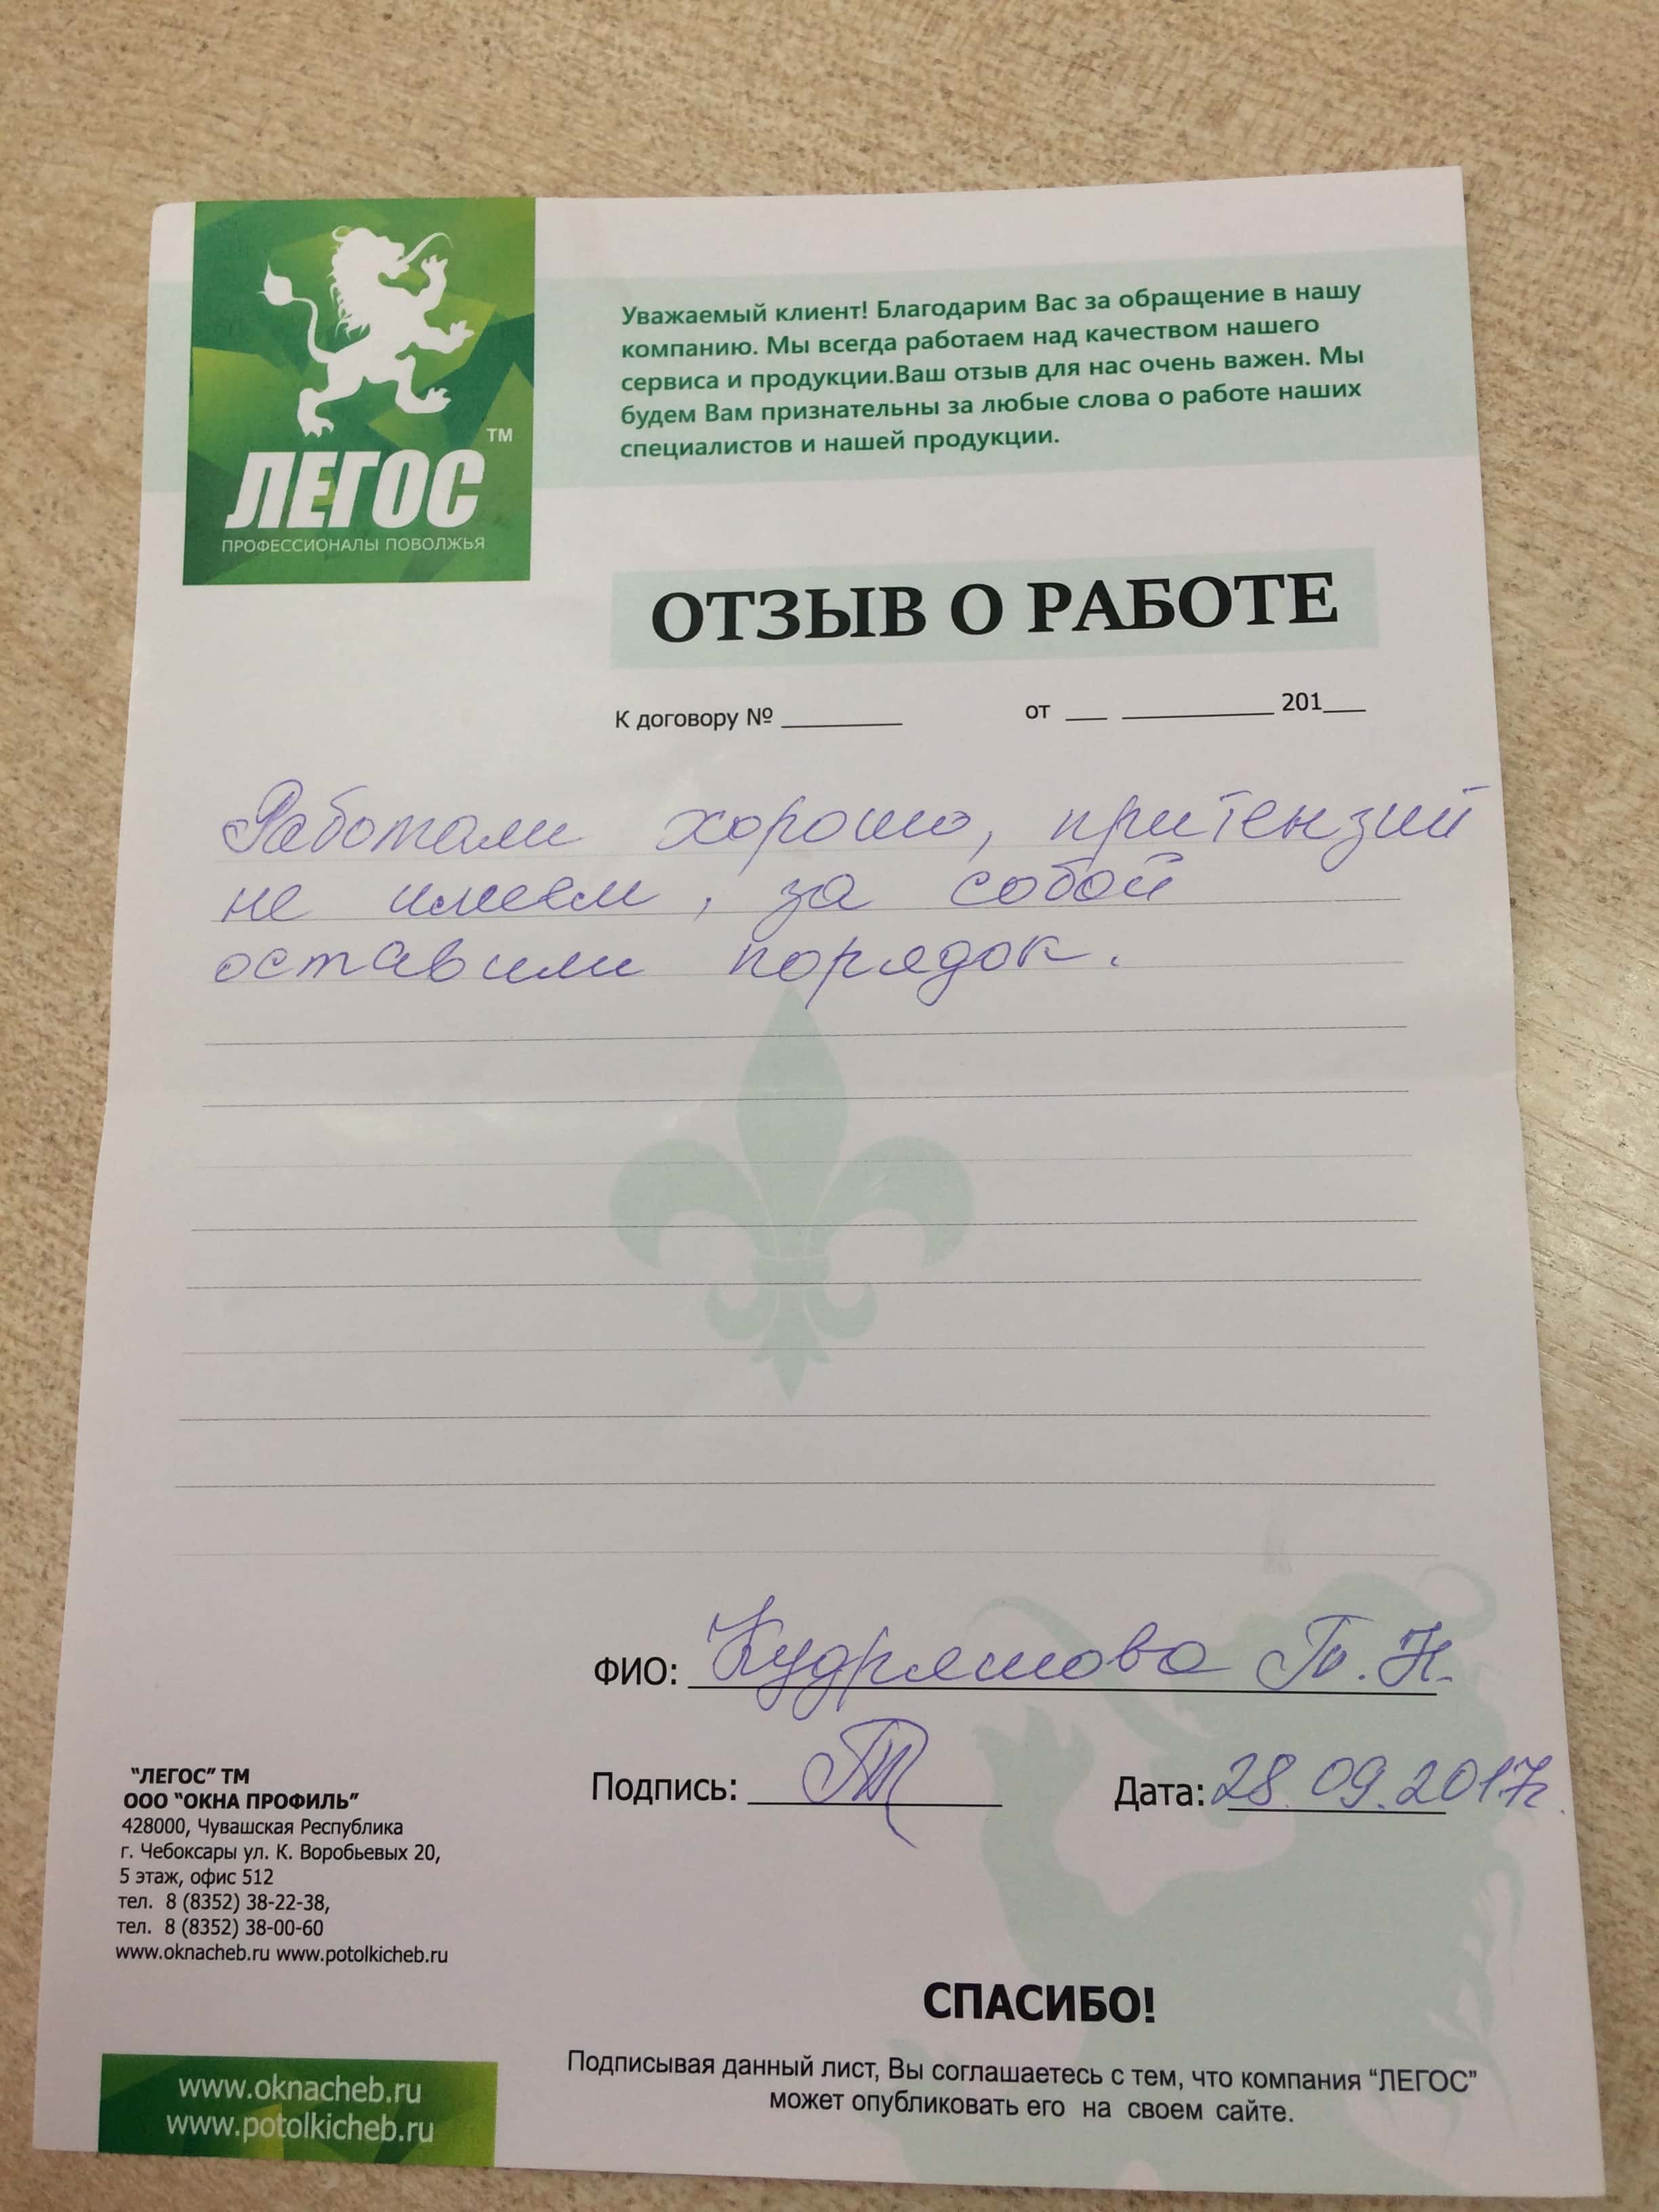 ТМ
ЛЕГОС
ПРОФЕССИОНАЛЫ ПОВОЛЖЬЯ
Уважаемый клиент! Благодарим Вас за обращение в нашу
компанию. Мы всегда работаем над качеством нашего
сервиса и продукции.Ваш отзыв для нас очень важен. Мы
будем Вам признательны за любые слова о работе наших
специалистов и нашей продукции.
ОТЗЫВ О РАБОТЕ
К договору № ________ от ___ __________ 201__
Работали хорошо, притензий
не имеем, за собой
оставили порядок.
ФИО: Кудряшова Т. Н.
Подпись: Дата: 28.09.2017г.
"ЛЕГОС" ТМ
ООО "ОКНА ПРОФИЛЬ"
428000, Чувашская Республика
г. Чебоксары ул. К. Воробьевых 20,
5 этаж, офис 512
тел. 8 (8352) 38-22-38,
тел. 8 (8352) 38-00-60
www.oknacheb.ru www.potolkicheb.ru
СПАСИБО!
Подписывая данный лист, Вы соглашаетесь с тем, что компания "ЛЕГОС"
может опубликовать его на своем сайте.
www.oknacheb.ru
www.potolkicheb.ru